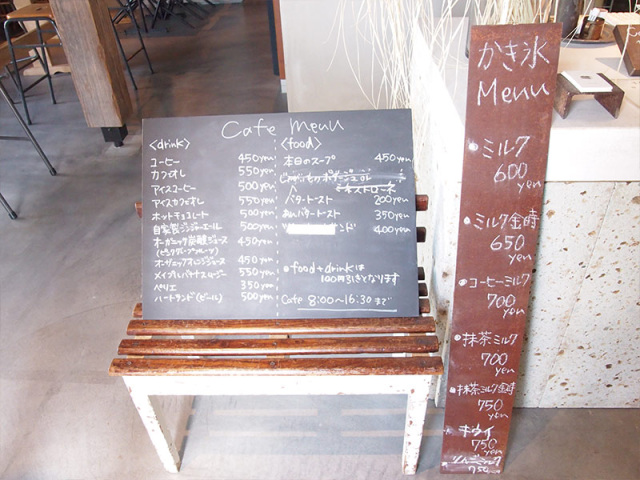 Cafe menu
<drink>
コーヒー 450yen
カフェオレ 550yen
アイスコーヒー 500yen
アイスカフェオレ 550yen
ホットチョコレート 500yen
自家製ジンジャーエール 500yen
オーガニック炭酸ジュース 450yen
(ピンクグレープフルーツ)
オーガニックオレンジジュース 450yen
メイプルバナナスムージー 550yen
ペリエ 350yen
ハートランド(ビール) 500yen
<food>
本日のスープ 450yen
じゃがいものポタージュ or
ミネストローネ
バタートースト 200yen
あんバタートースト 350yen
ンド 400yen
●food+drinkは
100円引きとなります
Cafe 8:00~16:30まで
かき氷
Menu
●ミルク
600
yen
●ミルク金時
650
yen
●コーヒーミルク
700
yen
●抹茶ミルク
700
yen
●抹茶ミルク金時
750
yen
●キウイ
750
yen
750